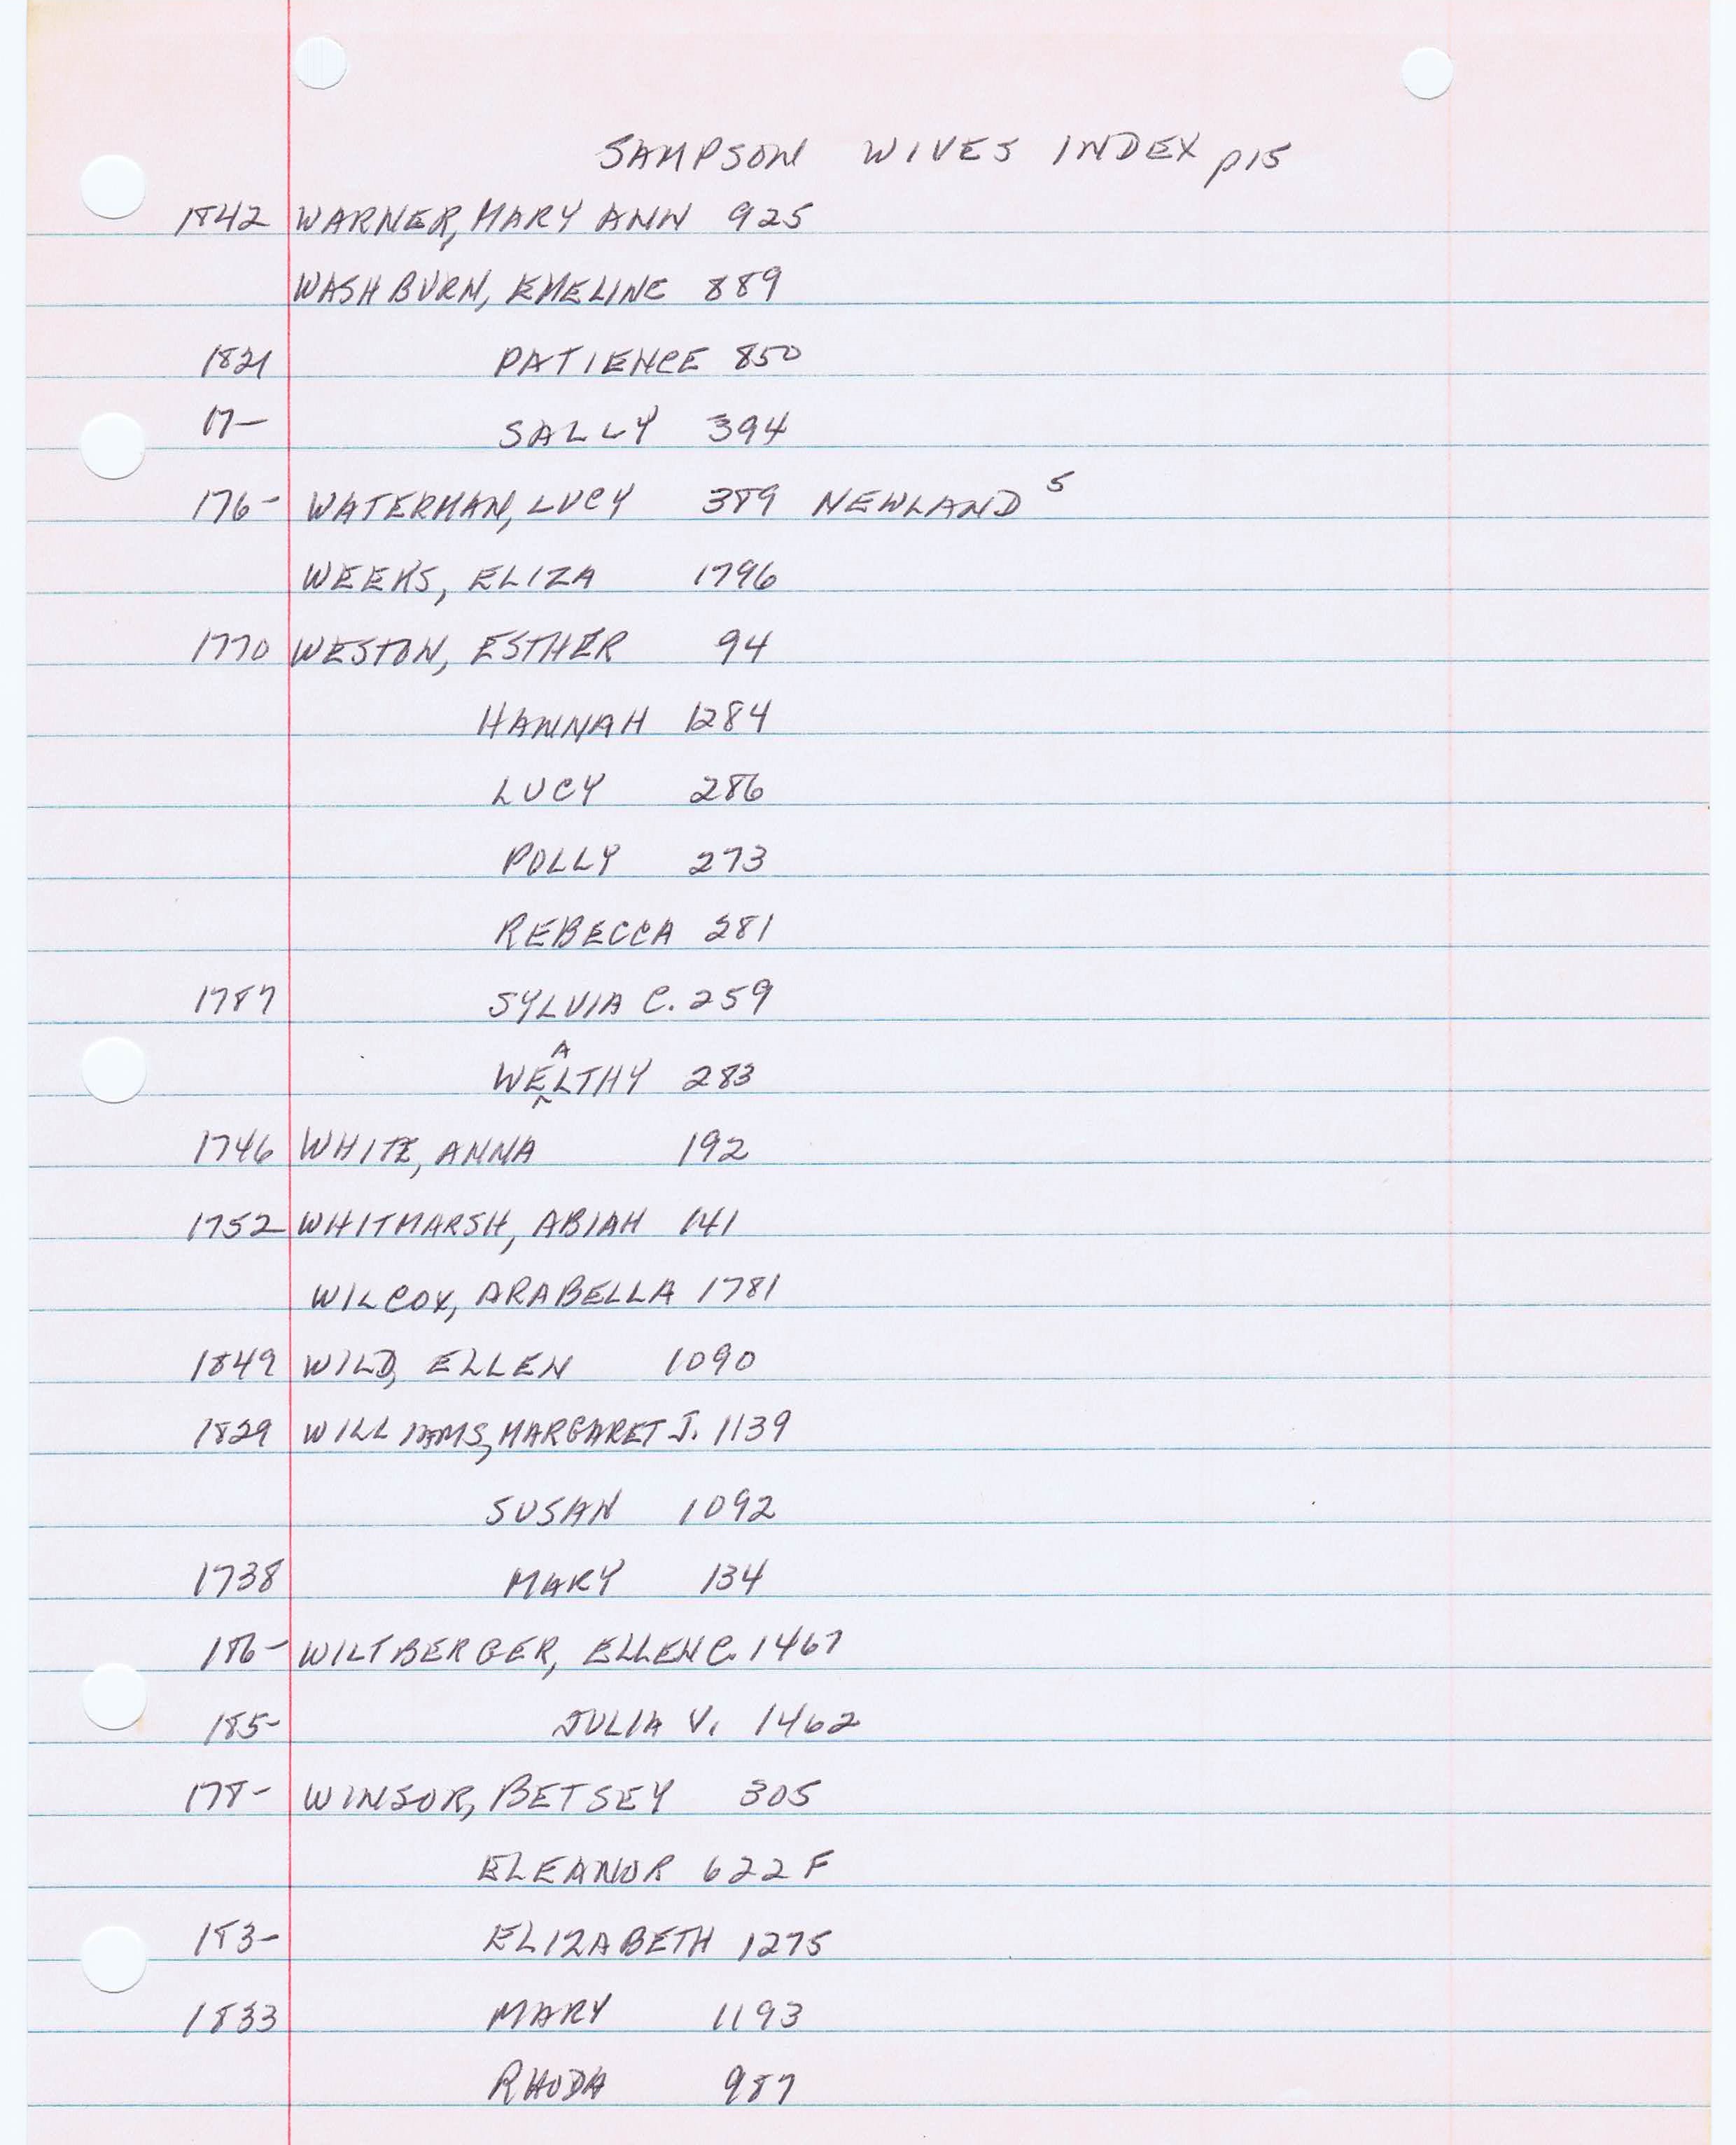 SAMPSON WIVES INDEX p15
1842 WARNER, MARY ANN 925
WASHBURN, EMELINE 889
1821 PATIENCE 850
17- SALLY 394
176- WATERMAN, LUCY 389 NEWLAND 5
WEEKS, ELIZA 1796
1770 WESTON, ESTHER 94
HANNAH 1284
LUCY 286
POLLY 273
REBECCA 281
1787 SYLVIA C. 259
A
WELTHY 283
^
1746 WHITE, ANNA 192
1752 WHITMARSH, ABIAH 141
WILCOX, ARABELLA 1781
1849 WILD, ELLEN 1090
1829 WILLIAMS, MARGARET J. 1139
SUSAN 1092
1738 MARY 134
186- WILTBERGER, ELLEN C. 1467
185- JULIA V. 1462
178- WINSOR, BETSEY 305
ELEANOR 622 F
183- ELIZABETH 1275
1833 MARY 1193
RHODA 987